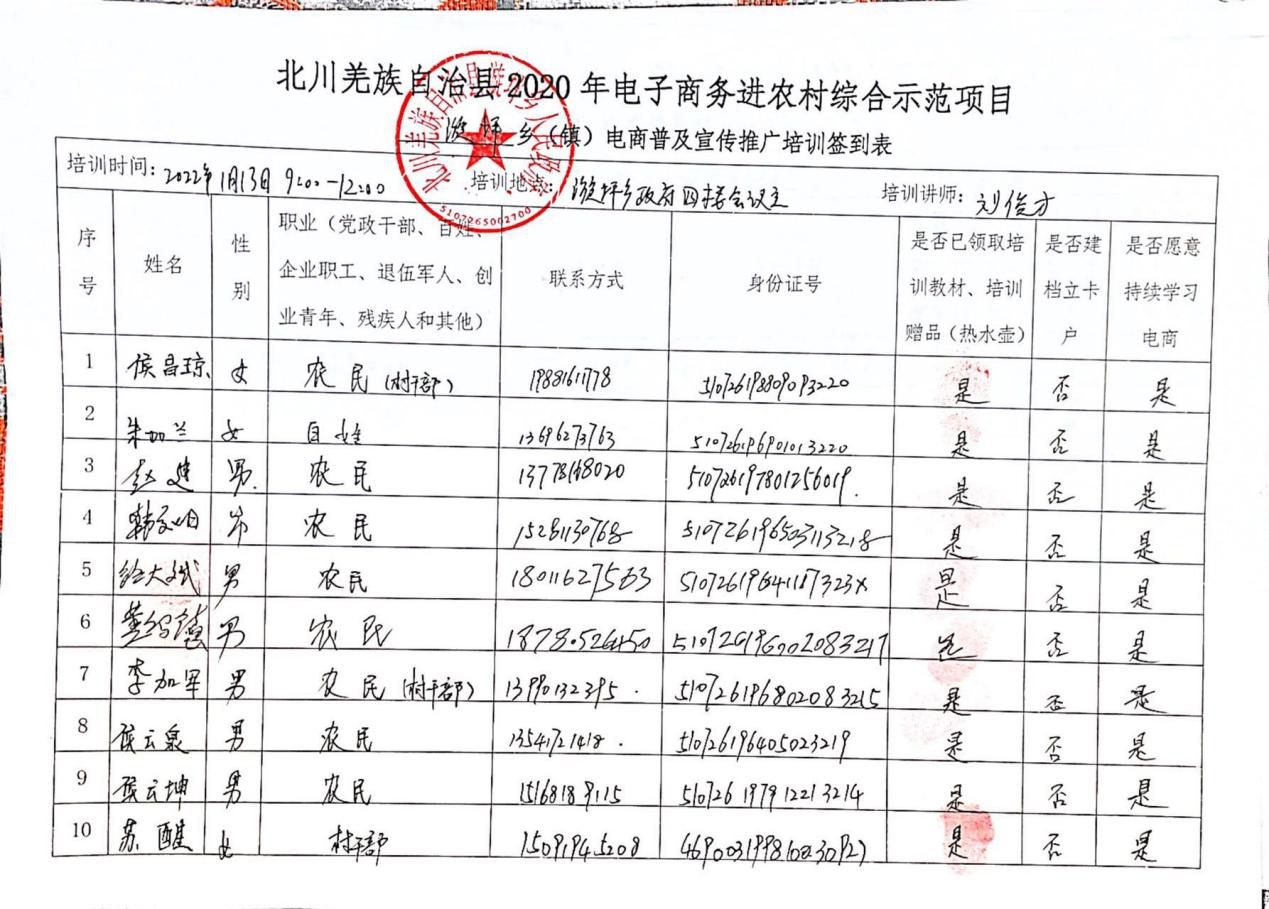 北川羌族自治县2020年电子商务进农村综合示范项目
漩坪乡(镇)电商普及宣传推广培训签到表
培训时间:2022年1月13日 9:00-12:00 培训地点:漩坪乡政府四楼会议室 培训讲师:刘俊才
序号 姓名 性别 职业(党政干部、百姓、企业职工、退伍军人、创业青年、残疾人和其他) 联系方式 身份证号 是否已领取培训教材、培训赠品(热水壶) 是否建档立卡户 是否愿意持续学习电商
1 侯昌琼 女 农民(村干部) 是 否 是
2 朱加兰 女 百姓 13696273763 是 否 是
3 赵建 男 农民 510726197801256019 是 否 是
4 农民 15281130768 510726196503113218 是 否 是
5 男 农民 18011627563 是 否 是
6 男 农民 18780526450 是 否 是
7 李加军 男 农民(村干部) 13990132395 510726196802083215 是 否 是
8 侯云泉 男 农民 13541721418 510726196405023219 是 否 是
9 侯云坤 男 农民 15168189115 510726197912213214 是 否 是
10 苏醒 女 村干部 15091945208 是 否 是
北川羌族自治县漩坪乡人民政府
5107265002700